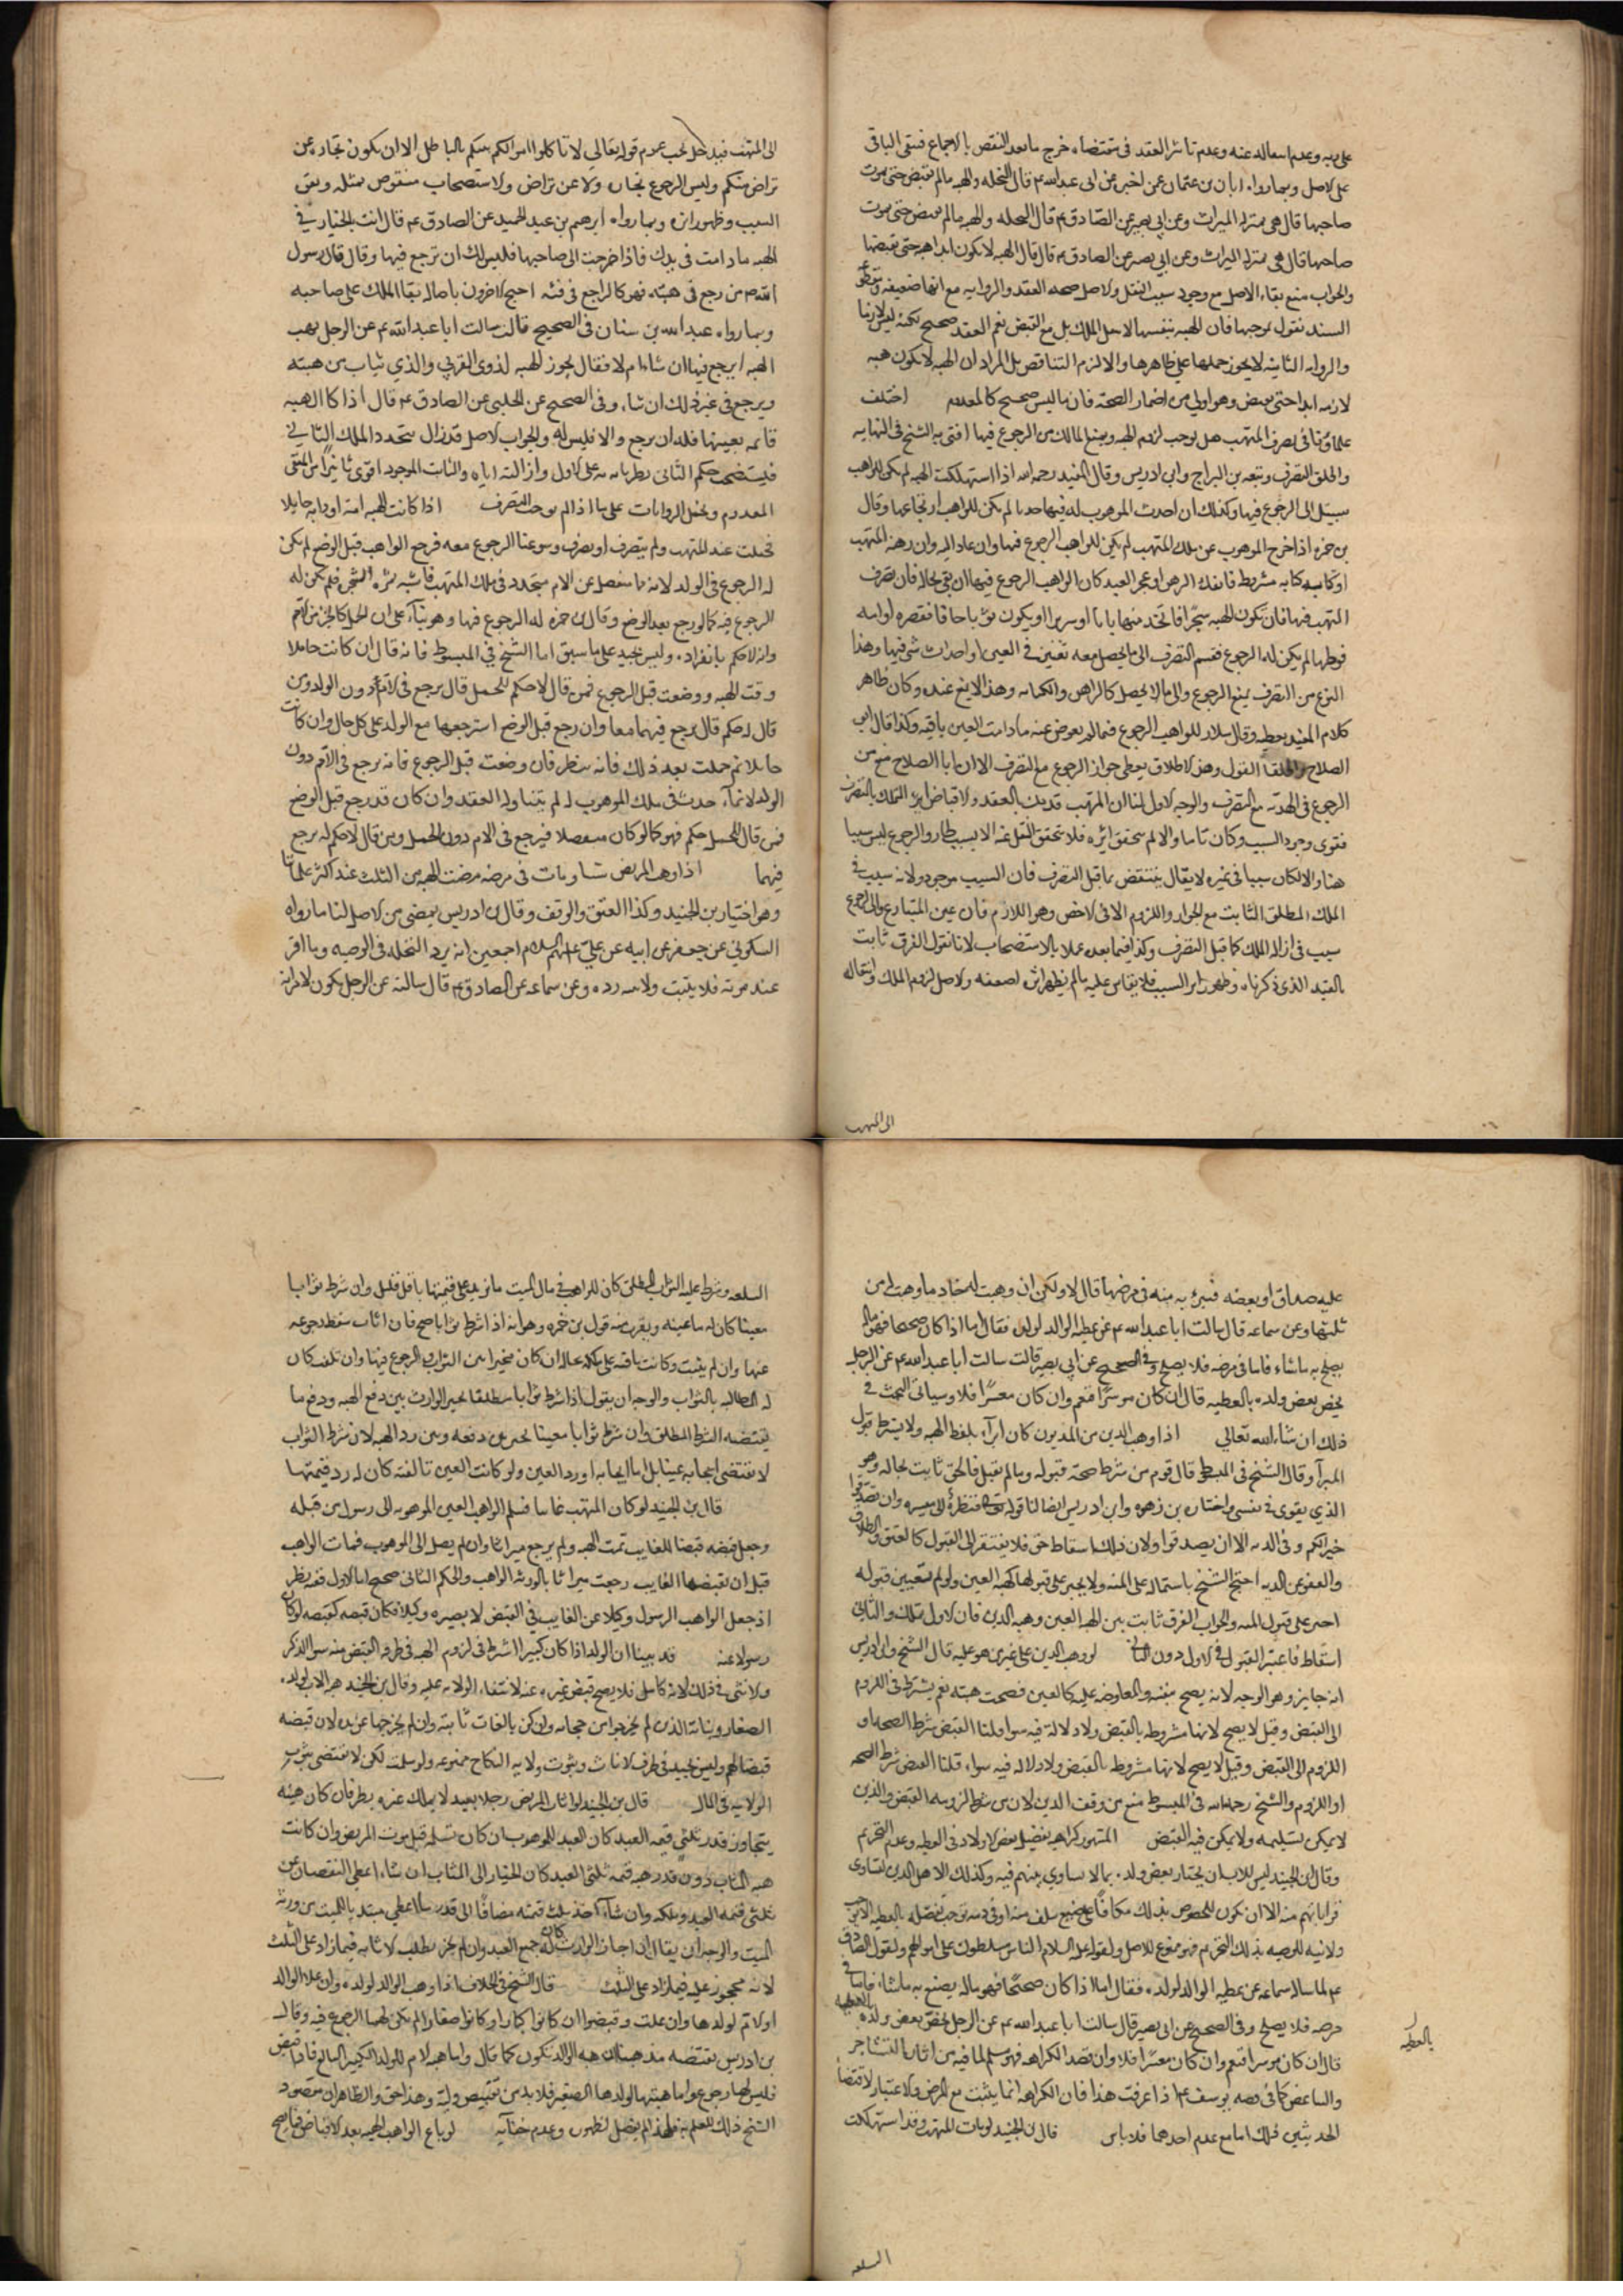 على ربه وعدم اسعاله عنه وعدم تاثير العقد فى مقتضاه خرج ما بعد النقص بالاجماع فيبقى الباقى
على الاصل وبما رواه ابان بن عثمان عمن اخبره عن ابى عبد الله ع قال النحله والهبه ما لم تقبض حتى يموت
صاحبها قال هى بمنزله الميراث وعن ابى بصير عن الصادق ع قال النحله والهبه ما لم تقبض حتى يموت
صاحبها قال هى بمنزله الميراث وعن ابى بصير عن الصادق ع قال قال الهبه لا يكون ابدا هبه حتى يقبضها
والجواب منع بقاء الاصل مع وجود سبب النقل والاصل صحه العقد والروايه مع انها ضعيفه
السند نقول بموجبها فان الهبه بنفسها لا تنقل الملك بل مع القبض نعم العقد صحيح لكنه ليس لازما
والروايه الثانيه لا يجوز حملها على ظاهرها والا لزم التناقض بل المراد ان الهبه لا يكون هبه
لازمه ابدا حتى يقبض وهو اولى من اضمار الصحه فان ما ليس بصحيح كالمعدوم اختلف
علماؤنا فى تصرف المتهب هل يوجب لزوم الهبه ويمنع المالك من الرجوع فيها افتى به الشيخ فى النهايه
واطلق التصرف وتبعه بن البراج وابن ادريس وقال المفيد رحمه الله اذا استهلكت الهبه لم يكن للواهب
سبيل الى الرجوع فيها وكذلك ان احدث الموهوب له فيها حدثا لم يكن للواهب ارتجاعها وقال
بن حمزه اذا خرج الموهوب عن ملك المتهب لم يكن للواهب الرجوع فيها وان عاد اليه وان رهنه المتهب
او كاتبه كتابه مشروطه فانفك الرهن او عجز العبد كان للواهب الرجوع فيها ان بقى بحاله فان تصرف
المتهب فيها فان تكون الهبه شجرا فاتخذ منها بابا او سريرا او يكون ثوبا خاما فقصره او امه
فوطئها لم يكن له الرجوع فقسم التصرف الى ما يحصل معه تغيير فى العين او احداث شى فيها وهذا
النوع من التصرف يمنع الرجوع والى ما لا يحصل كالرهن والكتابه وهذا لا يمنع عنده وكان ظاهر
كلام المفيد يعطيه وقال سلار للواهب الرجوع فيما لم يعوض عنه ما دامت العين باقيه وكذا قال ابو
الصلاح واطلقا القول وهذا الاطلاق يعطى جواز الرجوع مع التصرف الا ان ابا الصلاح منع من
الرجوع فى الهديه مع التصرف والوجه الاول لنا ان المتهب قد ملك بالعقد والاقباض الملك بالتصرف
فقوى وجود السبب وكان تاما والا لم يتحقق اثره فلا يتحقق النقل عنه الا بسبب طار والرجوع ليس سببا
هنا والا لكان سببا فى غيره لا يقال ينتقض بما قبل التصرف فان السبب موجود ولانه سبب فى
الملك المطلق الثابت مع الجواز واللزوم الا فى الاخص وهو اللازم فان عين المتبايع والى الرجوع
سبب فى ازاله الملك كما قبل التصرف وكذا فيما بعده عملا بالاستصحاب لانا نقول الفرق ثابت
بالقيد الذى ذكرناه وظهور اثر السبب فلا يقاس عليه ما لم يظهر اثره لضعفه والاصل لزوم الملك وانتقاله
الى المتهب
الى المتهب فيدخل تحت عموم قوله تعالى لا تاكلوا اموالكم بينكم بالباطل الا ان تكون تجاره عن
تراض منكم وليس الرجوع تجاره ولا عن تراض والاستصحاب منقوض بمثله ويقى
السبب وظهور اثره وبما رواه ابرهيم بن عبد الحميد عن الصادق ع قال انت بالخيار فى
الهبه ما دامت فى يدك فاذا خرجت الى صاحبها فليس لك ان ترجع فيها وقال قال رسول
الله ص من رجع فى هبته فهو كالراجع فى قيئه احتج الاخرون باصاله بقا الملك على صاحبه
وبما رواه عبد الله بن سنان فى الصحيح قال سالت ابا عبد الله ع عن الرجل يهب
الهبه ايرجع فيها ان شاء ام لا فقال يجوز الهبه لذوى القربى والذى يثاب من هبته
ويرجع فى غير ذلك ان شاء وفى الصحيح عن الحلبى عن الصادق ع قال اذا كا الهبه
قائمه بعينها فله ان يرجع والا فليس له والجواب الاصل قد زال بتجدد الملك الثانى
فيستصحب حكم الثانى بطريانه على الاول وازالته اياه والثابت الموجود اقوى تاثيرا من المنتفى
المعدوم ويحمل الروايات على ما اذا لم يوجد التصرف اذا كانت الهبه امه او دابه حايلا
فحملت عند المتهب ولم يتصرف او تصرف وسوغنا الرجوع معه فرجع الواهب قبل الوضع لم يكن
له الرجوع فى الولد لانه نما منفصل عن الام متجدد فى ملك المتهب فاشبه ثمره الشجر فلم يكن له
الرجوع فيه كما لو رجع بعد الوضع وقال بن حمزه له الرجوع فيها وهو بناء على ان الحمل كالجزء من الام
وانه لا حكم بانفراده وليس بجيد على ما سبق اما الشيخ فى المبسوط فانه قال ان كانت حاملا
وقت الهبه ووضعت قبل الرجوع فمن قال لا حكم للحمل قال يرجع فى الام دون الولد ومن
قال له حكم قال يرجع فيهما معا وان رجع قبل الوضع استرجعها مع الولد على كل حال وان كانت
حايلا ثم حملت بعد ذلك فانه ينظر فان وضعت قبل الرجوع فانه يرجع فى الام دون
الولد لانه نماء حدث فى ملك الموهوب له لم يتناوله العقد وان كان قد رجع قبل الوضع
فمن قال للحمل حكم فهو كما لو كان منفصلا فيرجع فى الام دون الحمل ومن قال لا حكم له يرجع
فيهما اذا وهب المريض شيئا ومات فى مرضه مضت الهبه من الثلث عند اكثر علمائنا
وهو اختيار بن الجنيد وكذا العتق والوقف وقال بن ادريس يمضى من الاصل لنا ما رواه
السكونى عن جعفر عن ابيه عن على عليهم السلام اجمعين انه يرد النحله فى الوصيه وما اقر
عند موته فلا يثبت ولا بينه رده وعن سماعه عن الصادق ع قال سالته عن الرجل يكون لامراته
عليه صداق او بعضه فتبرئه منه فى مرضها قال لا ولكن ان وهبت له جاز ما وهبت له من
ثلثها وعن سماعه قال سالت ابا عبد الله ع عن عطيه الوالد لولده فقال اما اذا كان صحيحا فهو ماله
يصنع به ما شاء فاما فى مرضه فلا يصلح وفى الصحيح عن ابى بصير قال سالت ابا عبد الله ع عن الرجل
يخص بعض ولده بالعطيه قال ان كان موسرا فنعم وان كان معسرا فلا وسياتى البحث فى
ذلك ان شاء الله تعالى اذا وهب الدين من المديون كان ابراء بلفظ الهبه ولا يشترط قبول
المبرا وقال الشيخ فى المبسوط قال قوم من شرط صحته قبوله وما لم يقبل فالحق ثابت بحاله وهو
الذى يقوى فى نفسى واختاره بن زهره وابن ادريس ايضا لنا قوله تعالى فنظرة الى ميسره وان تصدقوا
خير لكم وفى الديه الا ان يصدقوا ولان ذلك اسقاط حق فلا يفتقر الى القبول كالعتق والطلاق
والعفو عن الديه احتج الشيخ باشتماله على المنه ولا يجبر على قبولها كهبه العين ولو لم نعتبر قبوله
اجبر على قبول المنه والجواب الفرق ثابت بين الهبه العين وهبه الدين فان الاول تمليك والثانى
اسقاط فاعتبر القبول فى الاول دون الثانى لو وهب الدين على غير من هو عليه قال الشيخ وابن ادريس
انه جايز وهو الوجه لانه يصح بيعه والمعاوضه عليه كالعين فصحت هبته نعم يشترط فى اللزوم
الى القبض وقيل لا يصح لانها مشروطه بالقبض ولا دلالة فيه سوا قلنا القبض شرط الصحه او
اللزوم الى القبض وقيل لا يصح لانها مشروطه بالقبض ولا دلاله فيه سواء قلنا القبض شرط الصحه
او اللزوم والشيخ رحمه الله فى المبسوط منع من وقف الدين لان من شرط لزومه القبض والدين
لا يمكن تسليمه ولا يمكن فيه القبض المشهور كراهيه تفضيل بعض الاولاد فى العطيه وعدم التحريم
وقال بن الجنيد ليس للاب ان يختار بعض ولده بما لا يساوى بينهم فيه وكذلك الاهل الذين تساوى
قراباتهم منه الا ان يكون المخصوص بذلك مكافا على صنيع سلف منه او فى دينه توجب تفضيله بالعطيه الا من
ولانيه للوصيه بذلك التحريم فهو ممنوع للاصل ولقوله عليه السلام الناس مسلطون على اموالهم ولقول الصادق
ع لما ساله سماعه عن عطيه الوالد لولده فقال اما اذا كان صحيحا فهو ماله يصنع به ما شاء فاما فى
مرضه فلا يصلح وفى الصحيح عن ابى بصير قال سالت ابا عبد الله ع عن الرجل يخص بعض ولده بالعطيه
بالعطيه
قال ان كان موسرا فنعم وان كان معسرا فلا وان قصد الكراهه فهو مسلم لما فيه من اثاره التشاجر
والتباغض كما فى قصه يوسف ع اذا عرفت هذا فان الكراهه انما يثبت مع المرض والاعتبار لاقتضاء
الحديثين ذلك اما مع عدم احدهما فلا باس قال بن الجنيد لو مات المتهب وقد استهلكت
السلعه
السلعه وشرط عليه الثواب المطلق كان للواهب فى مال الميت ما يزيد على قيمتها باقل قليل وان شرط ثوابا
معينا كان له ما عينه ويقرب منه قول بن حمزه وهو انه اذا شرط ثوابا صح فان اثاب سقط رجوعه
عنها وان لم يثبت وكانت باقيه على ملكه بحاله كان مخيرا بين الثواب والرجوع فيها وان تلف كان
له المطالبه بالثواب والوجه ان يقول اذا شرط ثوابا مطلقا تخير الوارث بين دفع الهبه ودفع ما
يقتضيه الشرط المطلق وان شرط ثوابا معينا تخير بين دفعه وبين رد الهبه لان شرط الثواب
لا يقتضى ايجابه عينا بل اما ايجابه او رد العين ولو كانت العين تالفه كان له رد قيمتها
قال بن الجنيد لو كان المتهب غايبا فسلم الواهب العين الموهوبه الى رسول من قبله
وجعل قبضه قبضا للغايب تمت الهبه ولم يرجع ميراثا وان لم يصل الى الموهوب فمات الواهب
قبل ان يقبضها الغايب رجعت ميراثا لورثه الواهب والحكم الثانى صحيح اما الاول ففيه نظر
اذ جعل الواهب الرسول وكيلا عن الغايب فى القبض لا يصيره وكيلا فكان قبضه كقبضه لو كان
رسولا عنه قد بينا ان الولد اذا كان كبيرا اشترط فى لزوم الهبه فى طرفه القبض منه سوا الذكر
والانثى فى ذلك لانه كامل فلا يصح قبض غيره عنه لانتفاء الولايه عليه وقال بن الجنيد هبه الاب لولده
الصغار وبناته الذين لم يخرجوا من حجابه وان كن بالغات ثابته وان لم يخرجها عن يده لان قبضه
قبضا لهم وليس بجيد فى طرف الاناث وثبوت ولايه النكاح ممنوعه ولو سلمت لكن لا تقتضى ثبوت
الولايه فى المال قال بن الجنيد لو اثاب المريض رجلا بعبد لا يملك غيره نظر فان كان هبته
يتجاوز قدر ثلثى قيمه العبد كان العبد للموهوب ان كان تسلمه قبل موت المريض وان كانت
هبه المثاب دون قدر هبه قيمه ثلثى العبد كان الخيار الى المثاب ان شاء اعطى النقصان عن
ثلثى قيمه العبد وملكه وان شاء اخذ ثلث قيمته مضافا الى قدر ما اعطى مبتديا للميت من ورثه
الميت والوجه ان يقال ان اجاز الوارث كان له جميع العبد وان لم يجز بطلت الاثابه فيما زاد على الثلث
لانه محجور عليه فيما زاد على الثلث قال الشيخ فى الخلاف اذا وهب الوالد لولده وان علا الوالد
او الام لولدها وان علت وقبضوا ان كانوا كبارا او كانوا صغارا لم يكن لهما الرجوع فيه وقال
بن ادريس يقتضيه مذهبنا ان هبه الوالد تكون كما قال واما هبه الام للولد الكبير البالغ فاذا قبض
فليس لها رجوع واما هبتها لولدها الصغير فلا بد من تقبيض وليه وهذا حق والظاهر ان مقصود
الشيخ ذلك للعلم به فلهذا لم يفصل لظهوره وعدم خفائه لو باع الواهب الهبه بعد الاقباض فاصح